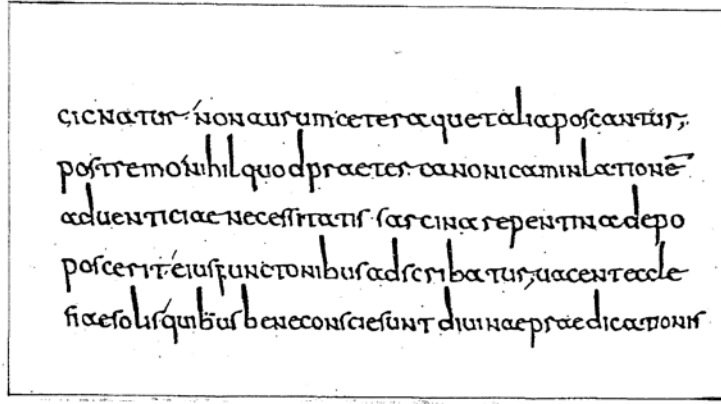 gignatur· nonaurumceteraquetaliaposcantur;
postremonihilquodpraeter·canonicaminlationē
aduenticiaenecessitatis·sarcinarepentinadepo
poscerit·eiusfunctonibusadscribatur;uacenteccle
siaesolisquibusbeneconsciesunt diuinaepraedicationis